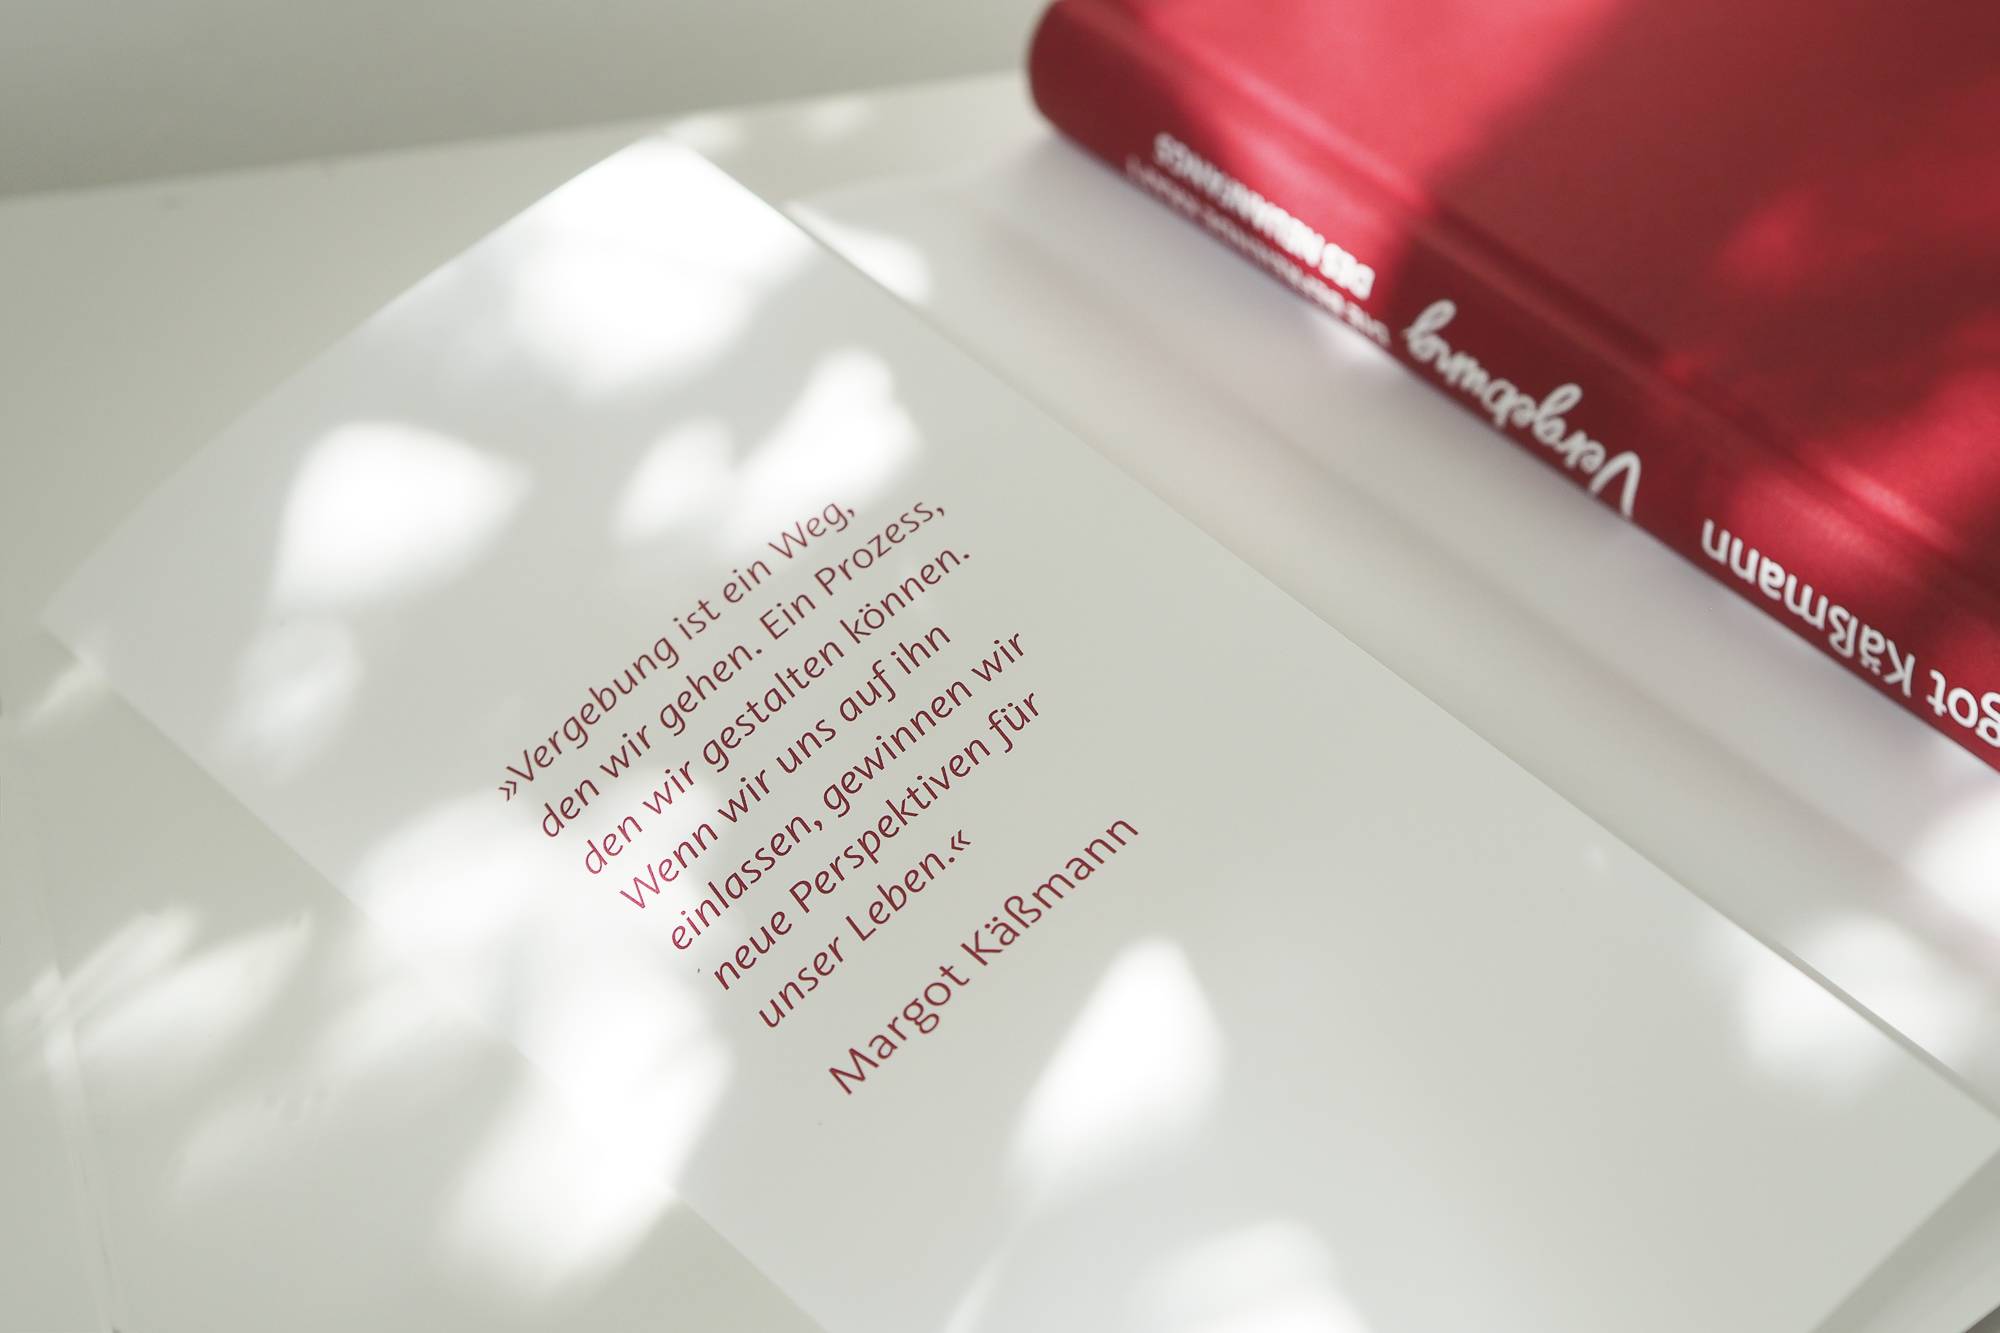 »Vergebung ist ein Weg,
den wir gehen. Ein Prozess,
den wir gestalten können.
Wenn wir uns auf ihn
einlassen, gewinnen wir
neue Perspektiven für
unser Leben.«
Margot Käßmann
got Käßmann
Vergebung
DES NEUANFANGS